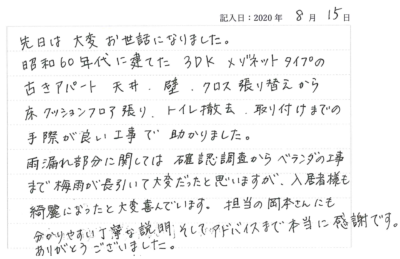 記入日：2020年 8月 15日
先日は大変お世話になりました。
昭和60年代に建てた 3DK メゾネットタイプの
古きアパート 天井、壁、クロス張り替えから
床クッションフロア張り、トイレ撤去、取り付けまでの
手際が良い工事で助かりました。
雨漏れ部分に関しては 確認調査からベランダの工事
まで梅雨が長引いて大変だったと思いますが、入居者様も
綺麗になったと大変喜んでいます。担当の岡本さんにも
分かりやすい丁寧な説明、そしてアドバイスまで本当に感謝です。
ありがとうございました。